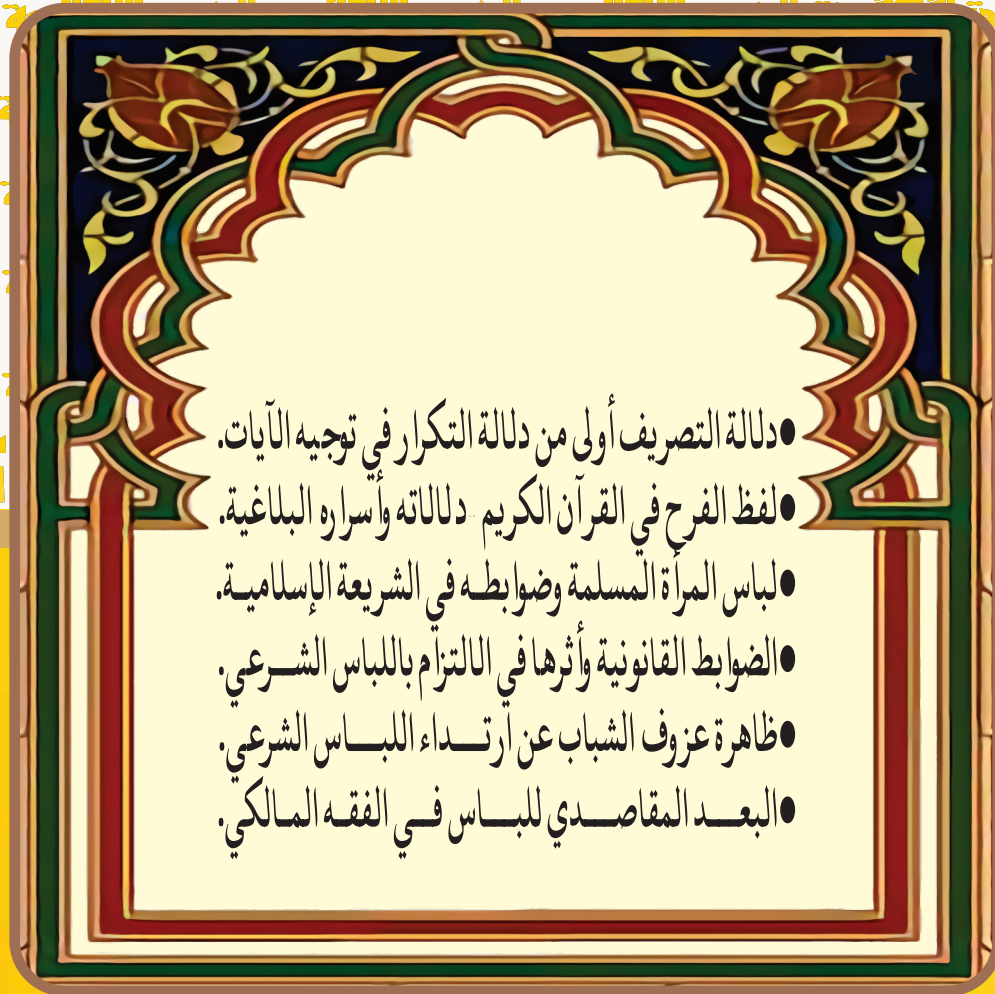 ●دلالة التصريف أولى من دلالة التكرار في توجيه الآيات.
●لفظ الفرح في القرآن الكريم - دلالاته وأسراره البلاغية.
●لباس المرأة المسلمة وضوابطـه في الشريعة الإسلاميـة.
●الضوابط القانونية وأثرها في الالتزام باللباس الشـــرعي.
●ظاهرة عزوف الشباب عن ارتـــداء اللبــــاس الشرعي.
●البعـــد المقاصــــدي للبــــاس فـــي الفقـه المـالكي.